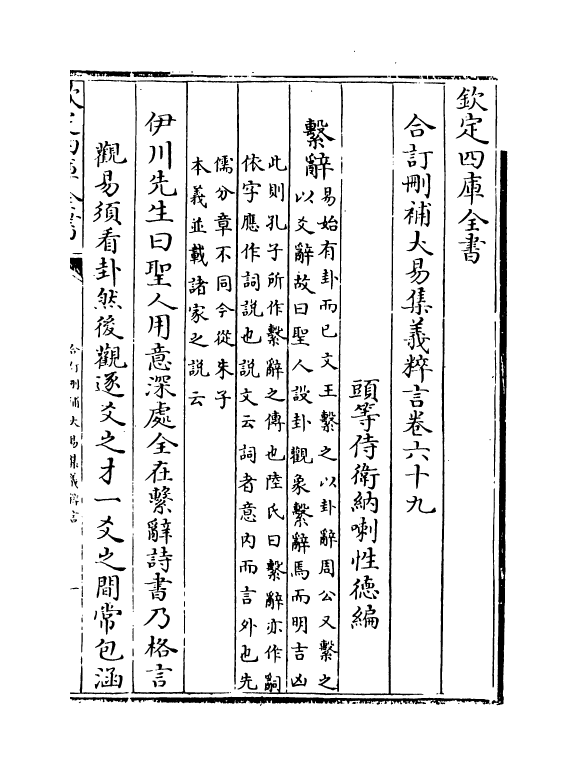 欽定四庫全書
合訂刪補大易集義粹言卷六十九
頭等侍衛納喇性德編
繫辭
易始有卦而已文王繫之以卦辭周公又繫之
以爻辭故曰聖人設卦觀象繫辭焉而明吉凶
此則孔子所作繫辭之傳也陸氏曰繫辭亦作嗣
依字應作詞說也說文云詞者意內而言外也先
儒分章不同今從朱子
本義並載諸家之說云
伊川先生曰聖人用意深處全在繫辭詩書乃格言
觀易須看卦然後觀逐爻之才一爻之間常包涵
欽定四庫全書
合訂刪補大易集義粹言
一